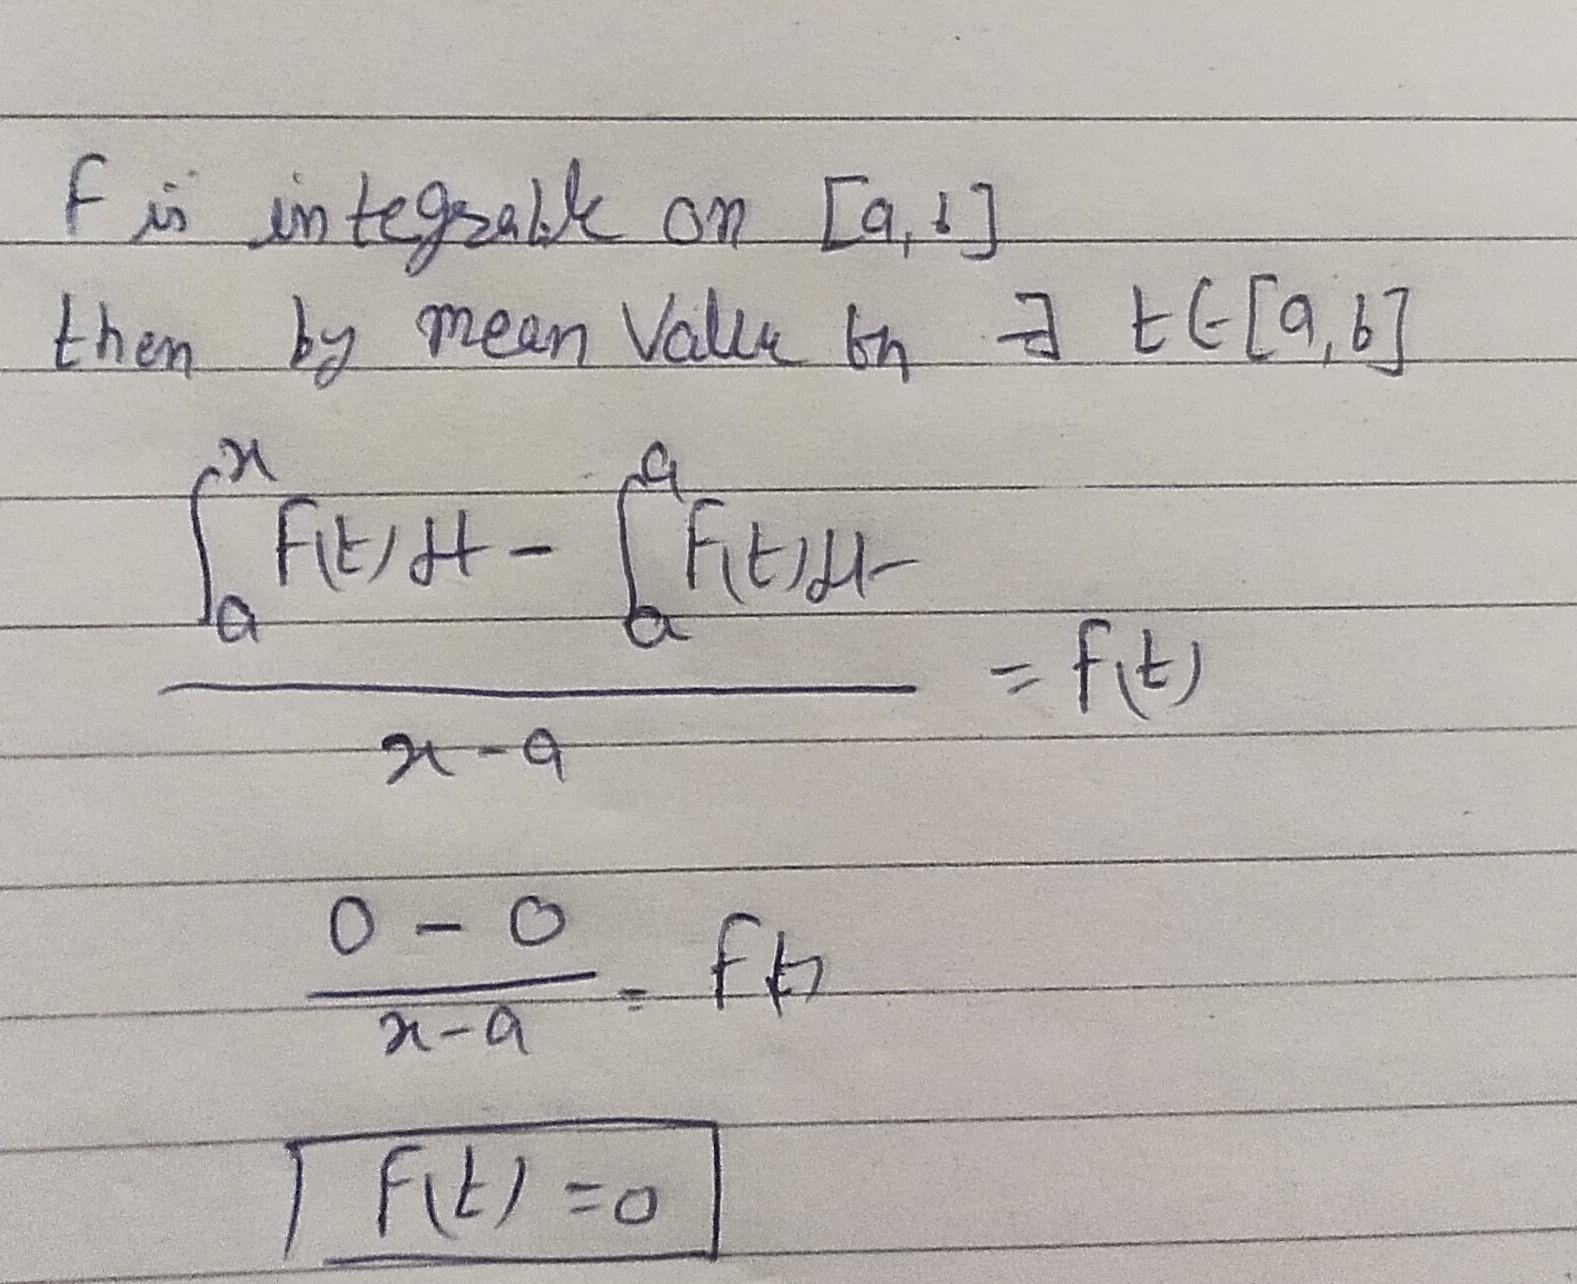 f is integrable on [a, b]
then by mean Value th ∃ t ∈ [a, b]
∫ₐˣ f(t) dt - ∫ₐᵃ f(t) dt
= f(t)
x - a
0 - 0
= f(t)
x - a
f(t) = 0